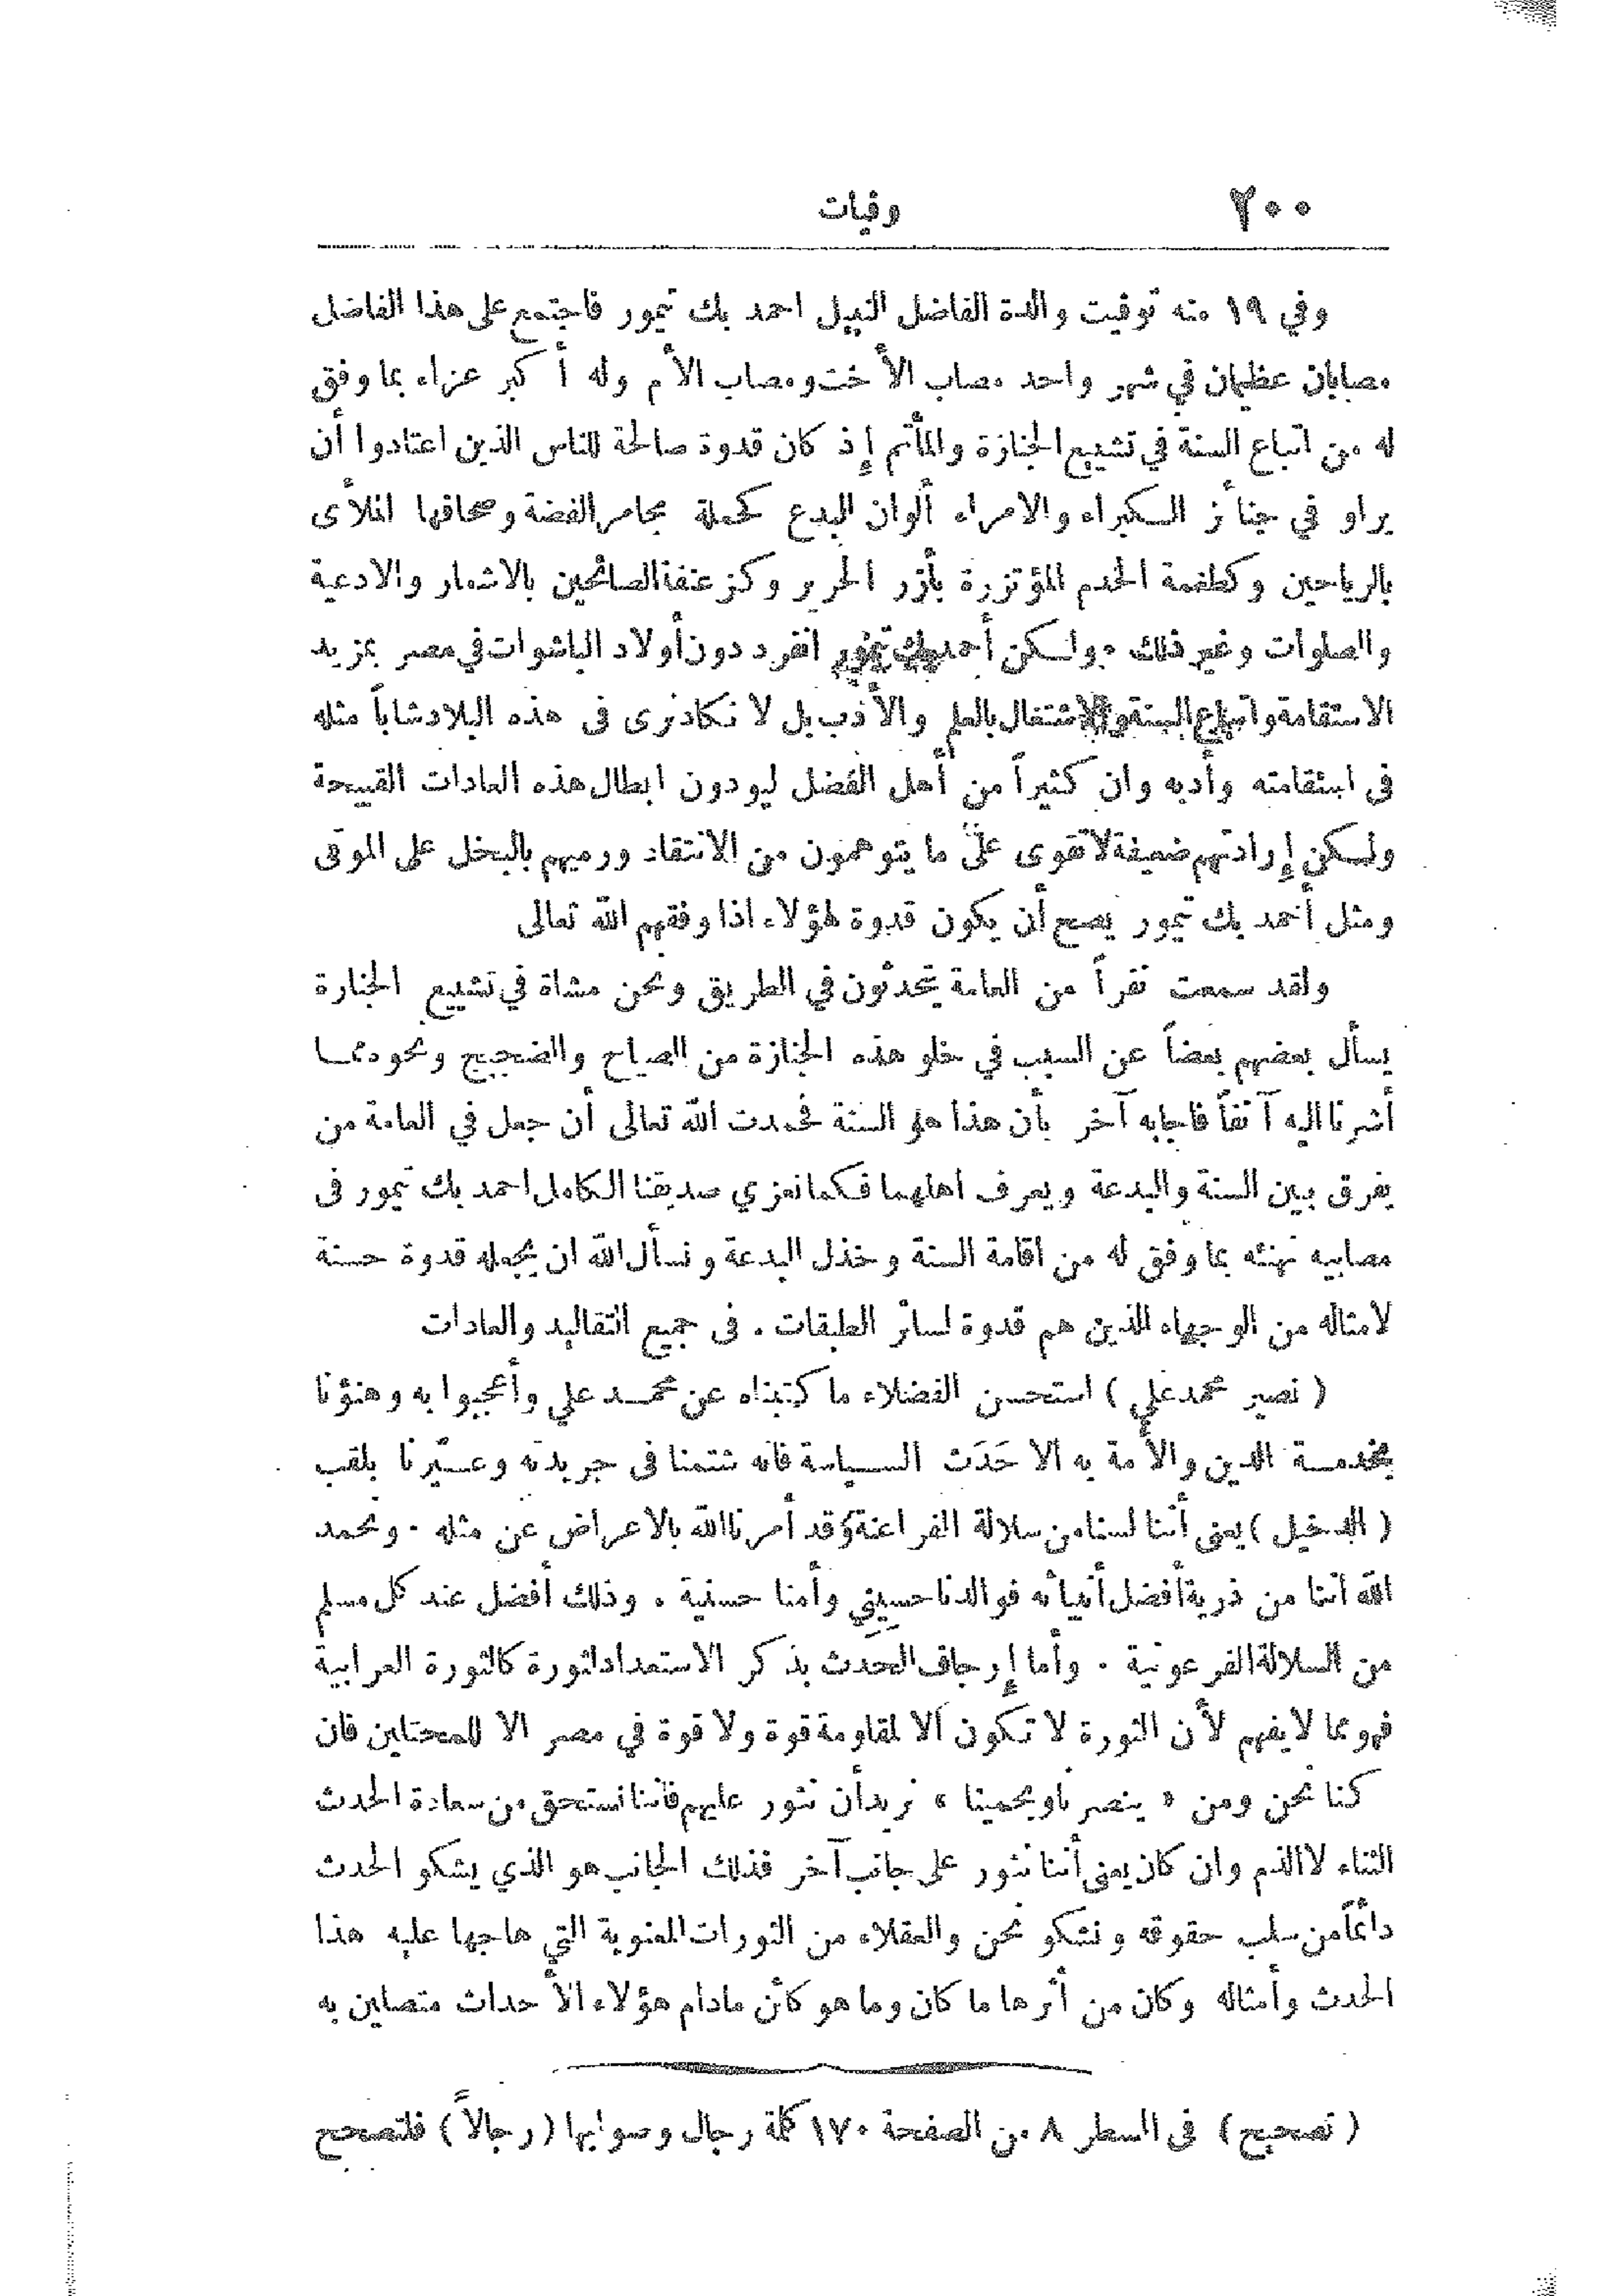 ٢٠٠
وفيات
وفي ١٩ منه توفيت والدة الفاضل النبيل احمد بك تيمور فاجتمع على هذا الفاضل
مصابان عظيمان في شهر واحد مصاب الأخت ومصاب الأم وله أكبر عزاء بما وفق
له من اتباع السنة في تشييع الجنازة والمأتم إذ كان قدوة صالحة للناس الذين اعتادوا أن
يراو في جنائز الكبراء والامراء ألوان البدع كحملة مجامر الفضة وصحافها الملأى
بالرياحين وكطغمة الخدم المؤتزرة بأزر الحرير وكزعنفة الصائحين بالاشعار والادعية
والصلوات وغير ذلك . ولكن أحمد بك تيمور انفرد دون أولاد الباشوات في مصر بمزيد
الاستقامة واتباع السنة والاشتغال بالعلم والأدب بل لا نكاد نرى فى هذه البلاد شاباً مثله
فى استقامته وأدبه وان كثيراً من أهل الفضل ليودون ابطال هذه العادات القبيحة
ولكن إرادتهم ضعيفة لا تقوى على ما يتوهمون من الانتقاد ورميهم بالبخل على الموتى
ومثل أحمد بك تيمور يصح أن يكون قدوة لهؤلاء اذا وفقهم الله تعالى
ولقد سمعت نفراً من العامة يتحدثون في الطريق ونحن مشاة في تشييع الجنازة
يسأل بعضهم بعضاً عن السبب في خلو هذه الجنازة من الصياح والضجيج ونحو ذلك مما
أشرنا اليه آنفاً فاجابه آخر بأن هذا هو السنة فحمدت الله تعالى أن جعل في العامة من
يفرق بين السنة والبدعة ويعرف اهلهما فكما نعزي صديقنا الكامل احمد بك تيمور فى
مصابيه نهنئه بما وفق له من اقامة السنة وخذل البدعة ونسأل الله ان يجعله قدوة حسنة
لامثاله من الوجهاء الذين هم قدوة لسائر الطبقات . فى جميع التقاليد والعادات
( نصير محمد علي ) استحسن الفضلاء ما كتبناه عن محمد علي وأعجبوا به وهنؤنا
بخدمة الدين والأمة به الا حَدَث السياسة فانه شتمنا فى جريدته وعيّرنا بلقب
( الدخيل ) يعنى أننا لسنا من سلالة الفراعنة وقد أمرنا الله بالاعراض عن مثله . ونحمد
الله اننا من ذرية أفضل أنبيائه فوالدنا حسيني وأمنا حسنية . وذلك أفضل عند كل مسلم
من السلالة الفرعونية . وأما إرجاف الحَدَث بذكر الاستعداد لثورة كالثورة العرابية
فهو مما لا يفهم لأن الثورة لا تكون الا لمقاومة قوة ولا قوة في مصر الا للمحتلين فان
كنا نحن ومن « ينصرنا ويحمينا » نريد أن نثور عليهم فاننا نستحق من سعادة الحدث
الثناء لا الذم وان كان يعنى أننا نثور على جانب آخر فذلك الجانب هو الذي يشكو الحدث
دائماً من سلب حقوقه ونشكو نحن والعقلاء من الثورات المعنوية التي هاجها عليه هذا
الحدث وأمثاله وكان من أثرها ما كان وما هو كائن مادام هؤلاء الأحداث متصلين به
( تصحيح ) فى السطر ٨ من الصفحة ١٧٠ كلمة رجال وصوابها ( رجالاً ) فلتصحح